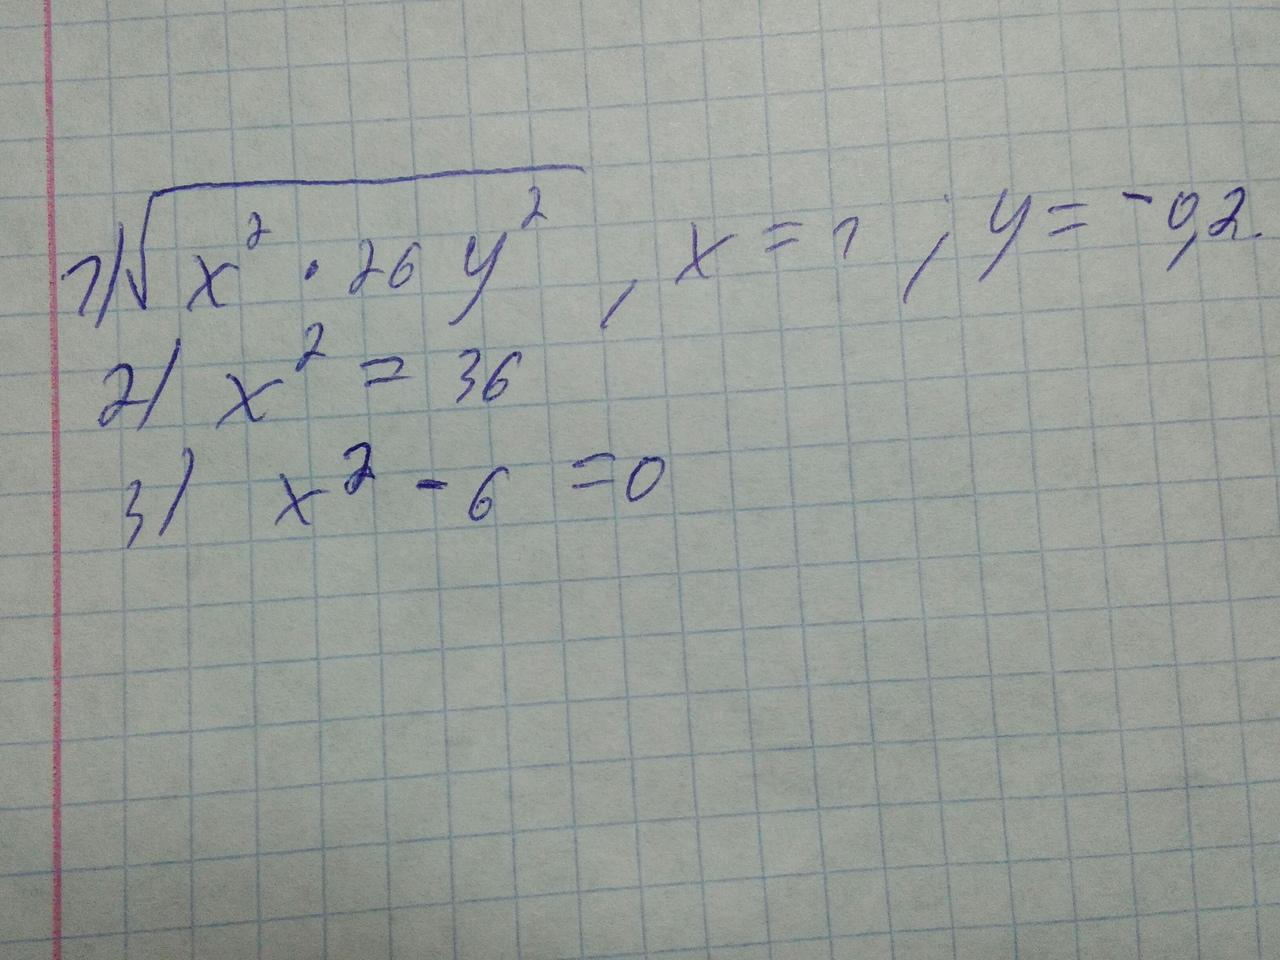 1) √(x² · 26 y²), x = 1; y = -0,2.
2) x² = 36
3) x² - 6 = 0